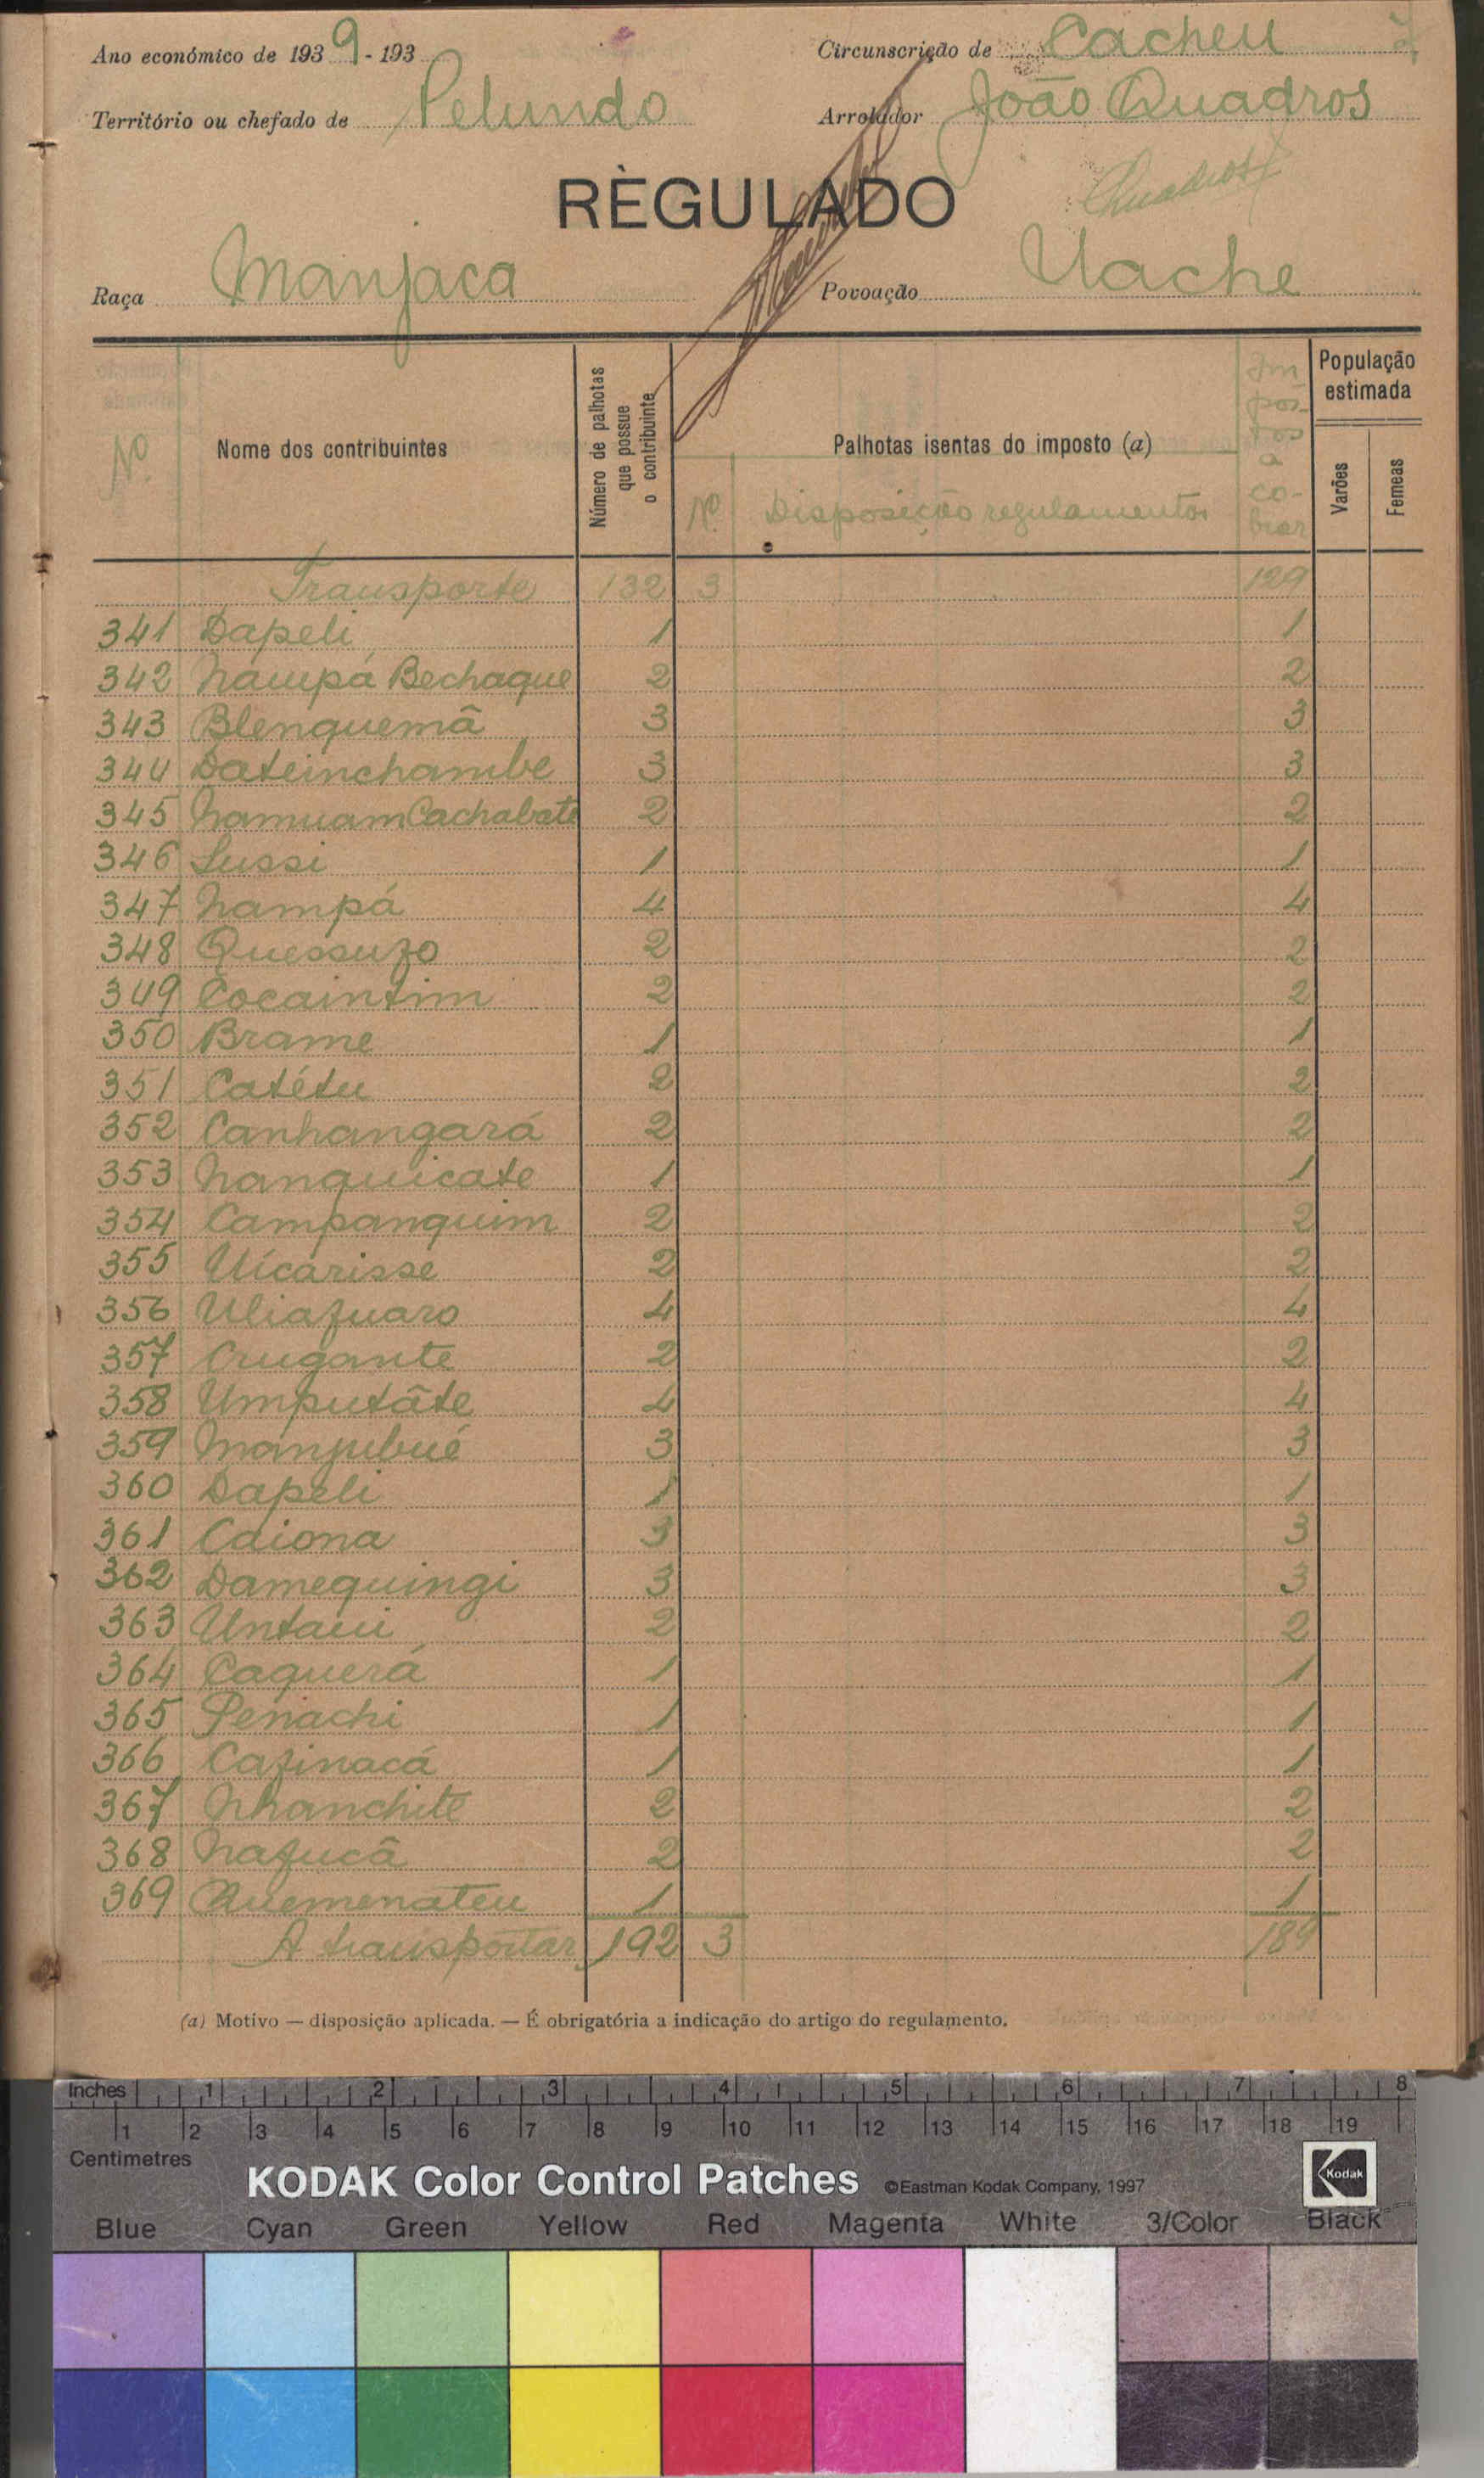 Ano económico de 1939-193
Circunscrição de Cacheu
Território ou chefado de Pelundo
Arrolador João Quadros
Quadros
RÈGULADO
Raça Manjaca
Povoação Uache
Nº
Nome dos contribuintes
Número de palhotas que possue o contribuinte
Palhotas isentas do imposto (a)
Nº Disposição regulamentos
Im pos- tos a co- brar
População estimada
Varões
Femeas
Transporte 132 3 129
341 Dapeli 1 1
342 Nampá Bechaque 2 2
343 Blenquemã 3 3
344 Dateinchambe 3 3
345 Namuam Cachabate 2 2
346 Sussi 1 1
347 Nampá 4 4
348 Quessuzo 2 2
349 Cocaintim 2 2
350 Brame 1 1
351 Catétu 2 2
352 Canhangará 2 2
353 Nanquicate 1 1
354 Campanquim 2 2
355 Uícarisse 2 2
356 Uliafuaro 4 4
357 Crugante 2 2
358 Umputâte 4 4
359 Manjubué 3 3
360 Dapeli 1 1
361 Caiona 3 3
362 Damequingi 3 3
363 Untaui 2 2
364 Caquerá 1 1
365 Penachi 1 1
366 Cafinacá 1 1
367 Nhanchite 2 2
368 Nafucã 2 2
369 Quemenateu 1 1
A transportar 192 3 189
(a) Motivo — disposição aplicada. — É obrigatória a indicação do artigo do regulamento.
Inches 1 2 3 4 5 6 7 8
1 2 3 4 5 6 7 8 9 10 11 12 13 14 15 16 17 18 19
Centimetres
KODAK Color Control Patches ©Eastman Kodak Company, 1997 Kodak
Blue Cyan Green Yellow Red Magenta White 3/Color Black